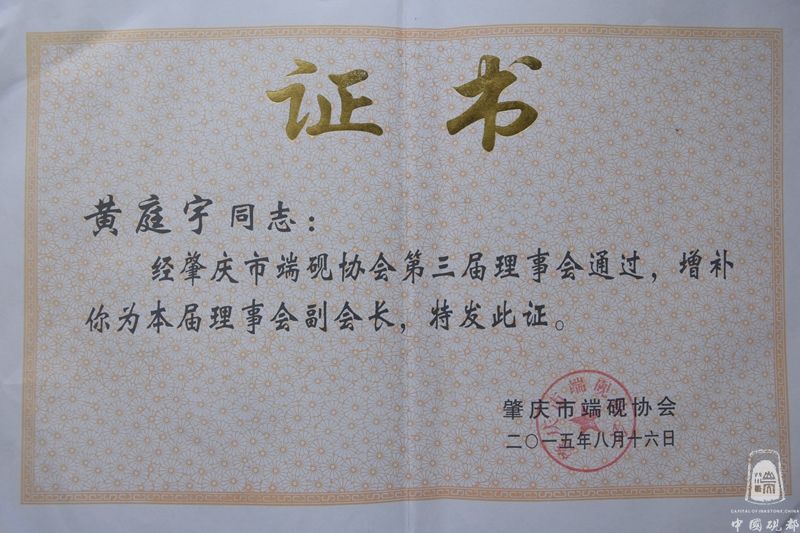 证书
黄庭宇同志：
经肇庆市端砚协会第三届理事会通过，增补
你为本届理事会副会长，特发此证。
肇庆市端砚协会
二〇一五年八月十六日
CAPITAL OF INKSTONE, CHINA
中國砚都